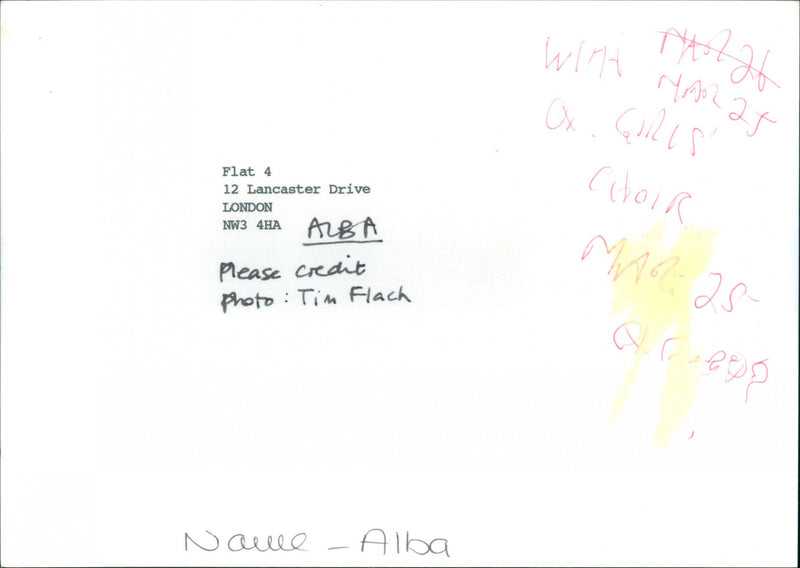 Flat 4
12 Lancaster Drive
LONDON
NW3 4HA ALBA
Please credit
photo: Tim Flach
WITH MAR 26
MAR 25
Ox. GIRLS'
CHOIR
MAR 25
Name - Alba